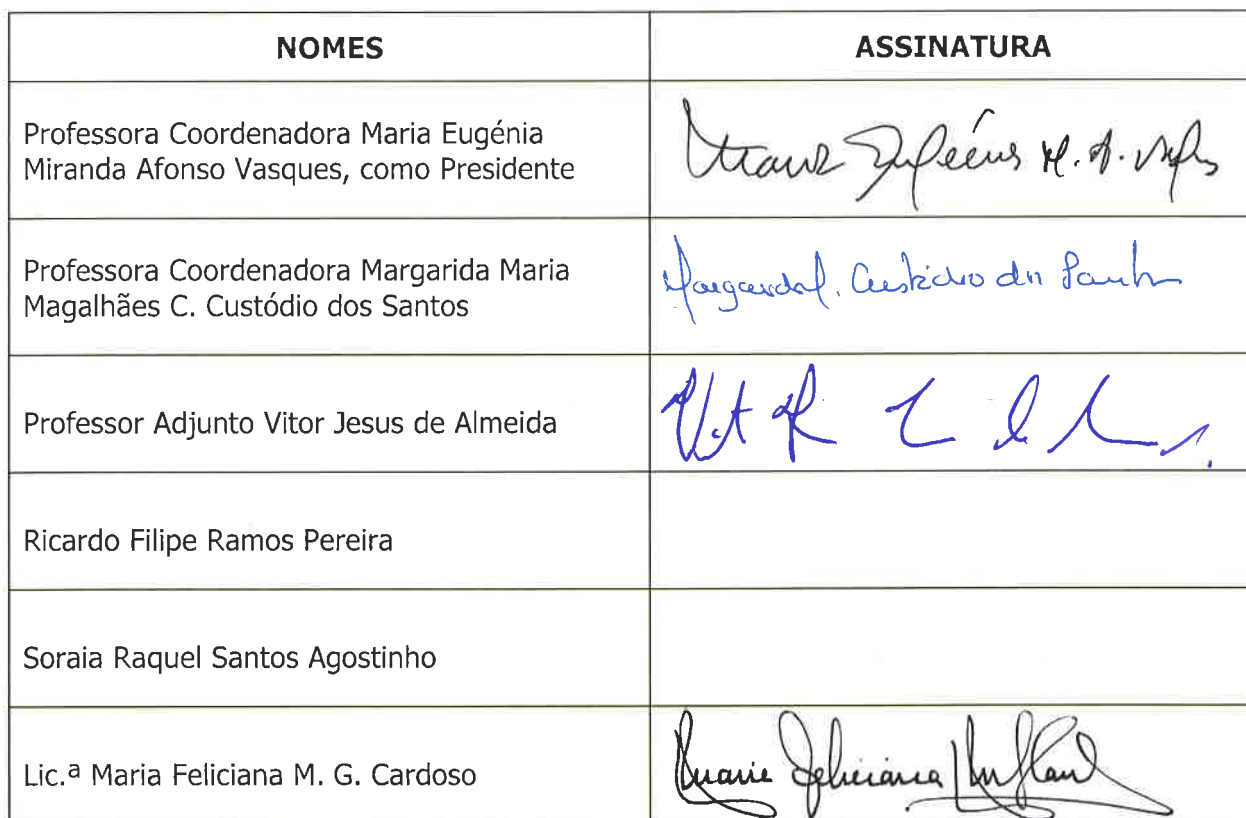 NOMES
ASSINATURA
Professora Coordenadora Maria Eugénia
Miranda Afonso Vasques, como Presidente
Professora Coordenadora Margarida Maria
Magalhães C. Custódio dos Santos
Margarida M. Custódio dos Santos
Professor Adjunto Vitor Jesus de Almeida
Ricardo Filipe Ramos Pereira
Soraia Raquel Santos Agostinho
Lic.ª Maria Feliciana M. G. Cardoso
Maria Feliciana